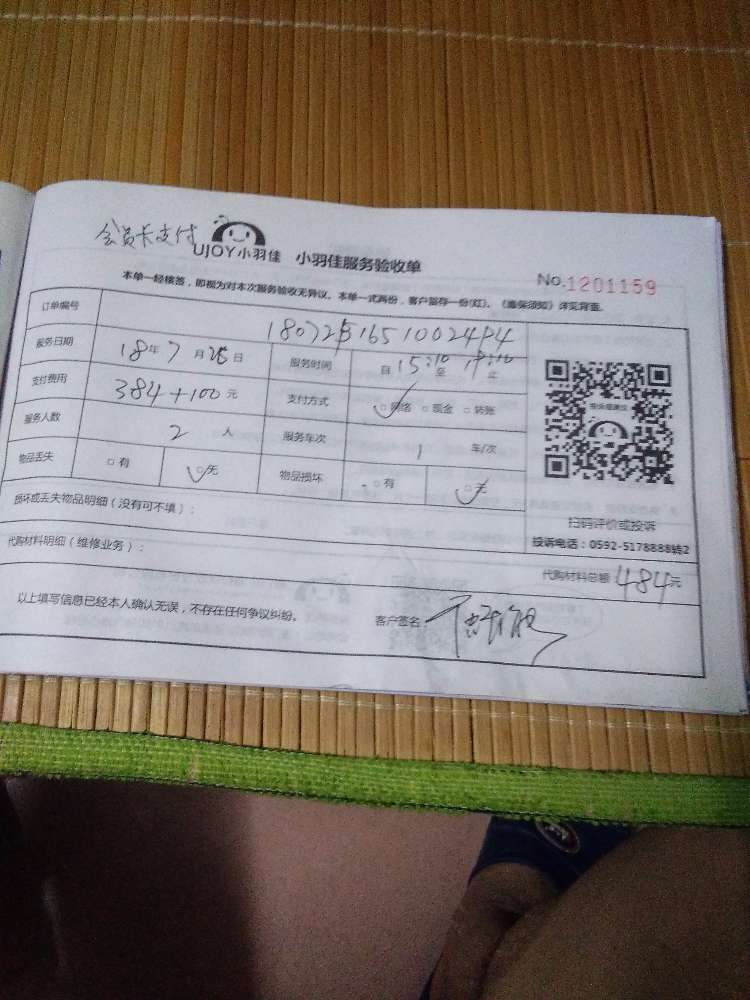 会员卡支付
UJOY小羽佳 小羽佳服务验收单
No.1201159
本单一经接签，即视为对本次服务验收无异议。本单一式两份，客户留存一份(红)。《维保须知》详见背面。
订单编号
服务日期 18年7月 日 服务时间 自15:10至 止
支付费用 384+100元 支付方式 网络 □现金 □转账
服务人数 2人 服务车次 1 车/次
物品丢失 □有 □无 物品损坏 □有 □无
损坏或丢失物品明细（没有可不填）：
扫码评价或投诉
投诉电话：0592-5178888转2
代购材料明细（维修业务）：
代购材料总额 484元
以上填写信息已经本人确认无误，不存在任何争议纠纷。 客户签名：